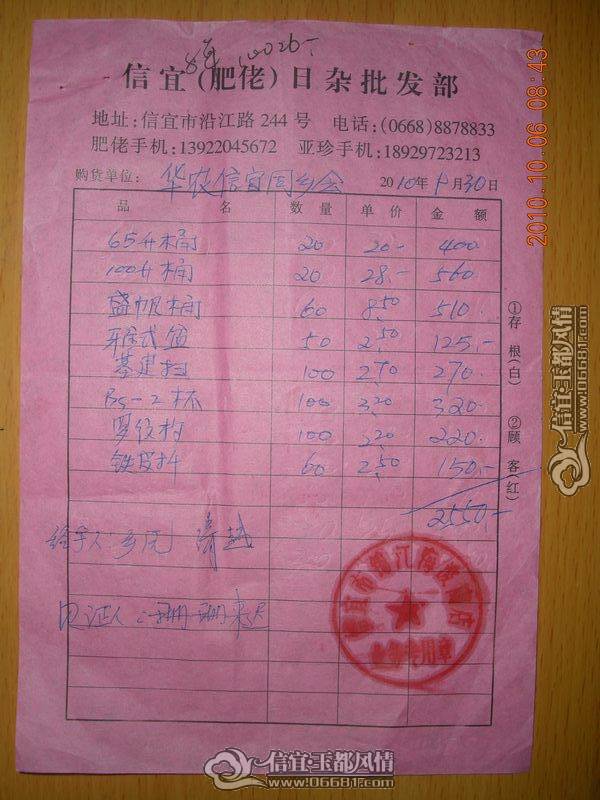 信宜(肥佬)日杂批发部
地址:信宜市沿江路244号 电话:(0668)8878833
肥佬手机:13922045672 亚珍手机:18929723213
购货单位: 华农信宜同乡会 2010年9月30日
品 名 数 量 单 价 金 额
65升桶 20 20- 400.
100升桶 20 28.- 560.
盛巾桶 60 8.50 510.
50 2.50 125.-
基建扫 100 2.70 270.
BS-2杯 100 3.20 320.
100 2.20 220.
铁皮 60 2.50 150.-
2550.-
经手人:
见证人:
①存根(白)
②顾客(红)
2010.10.06 08:43
信宜·玉都风情
www.06681.com
信宜·玉都风情
www.06681.com